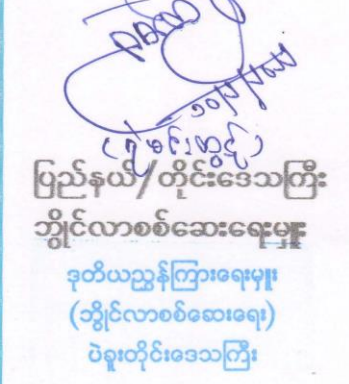 ပြည်နယ်/တိုင်းဒေသကြီး
ဘွိုင်လာစစ်ဆေးရေးမှူး
ဒုတိယညွှန်ကြားရေးမှူး
(ဘွိုင်လာစစ်ဆေးရေး)
ပဲခူးတိုင်းဒေသကြီး